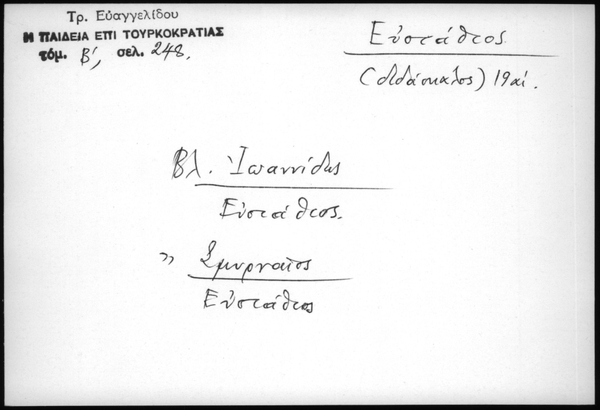 Τρ. Εὐαγγελίδου
Η ΠΑΙΔΕΙΑ ΕΠΙ ΤΟΥΡΚΟΚΡΑΤΙΑΣ
τόμ. Β', σελ. 248.
Εὐστάθιος
(διδάσκαλος) 19 αἰ.
Βλ. Ἰωαννίδης
Εὐστάθιος.
" Σμυρναῖος
Εὐστάθιος